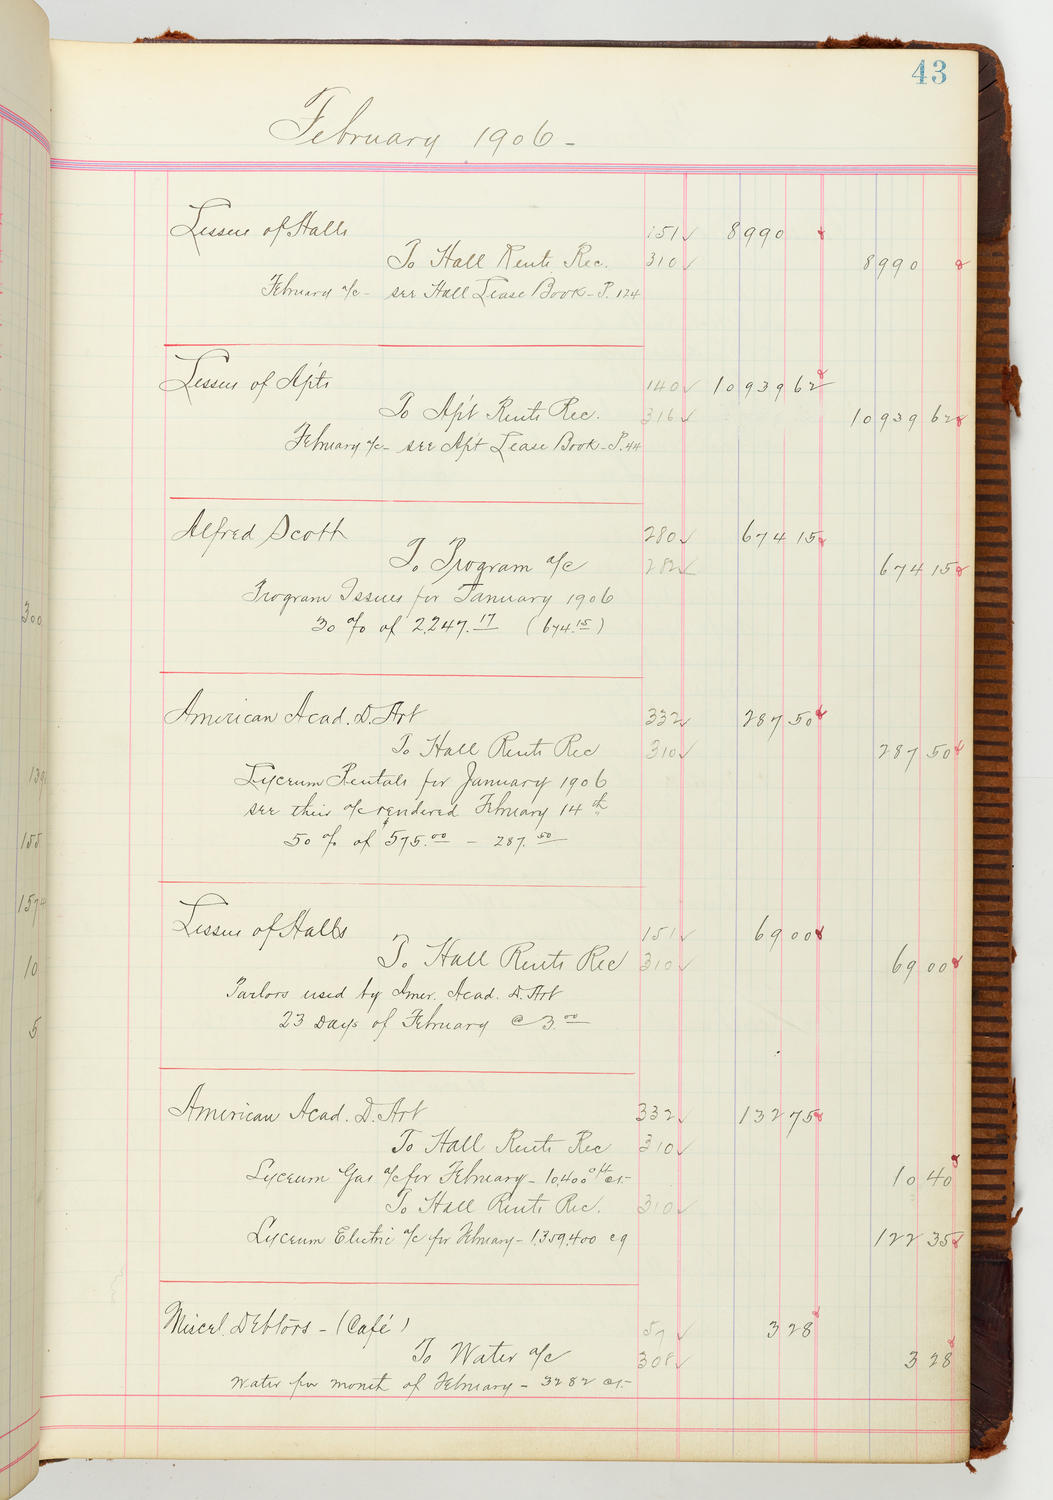 43
February 1906 -
Lessees of Halls 151 ✓ 8990
To Hall Rents Rec. 310 ✓ 8990
February a/c - see Hall Lease Book - P. 124
Lessees of Apts 140 ✓ 10939 62
To Ap't Rents Rec. 316 ✓ 10939 62
February a/c - see Ap't Lease Book - P. 44
Alfred Scott 280 ✓ 674 15
To Program a/c 282 ✓ 674 15
Program Issues for January 1906
30 % of 2,247.17 (674.15)
American Acad. D. Art 332 ✓ 287 50
To Hall Rents Rec 310 ✓ 287 50
Lyceum Rentals for January 1906
see their a/c rendered February 14th
50 % of $575.00 - 287.50
Lessees of Halls 151 ✓ 69 00
To Hall Rents Rec 310 ✓ 69 00
Parlors used by Amer. Acad. D. Art
23 Days of February @ 3.00
American Acad. D. Art 332 ✓ 132 75
To Hall Rents Rec 310 ✓
Lyceum Gas a/c for February - 10,400 ft 10 40
To Hall Rents Rec. 310 ✓
Lyceum Electric a/c for February - 1,359,400 122 35
Miscel. Debtors - (Café) 57 ✓ 3 28
To Water a/c 308 ✓ 3 28
Water for month of February - 3282
300
155
157
10
5